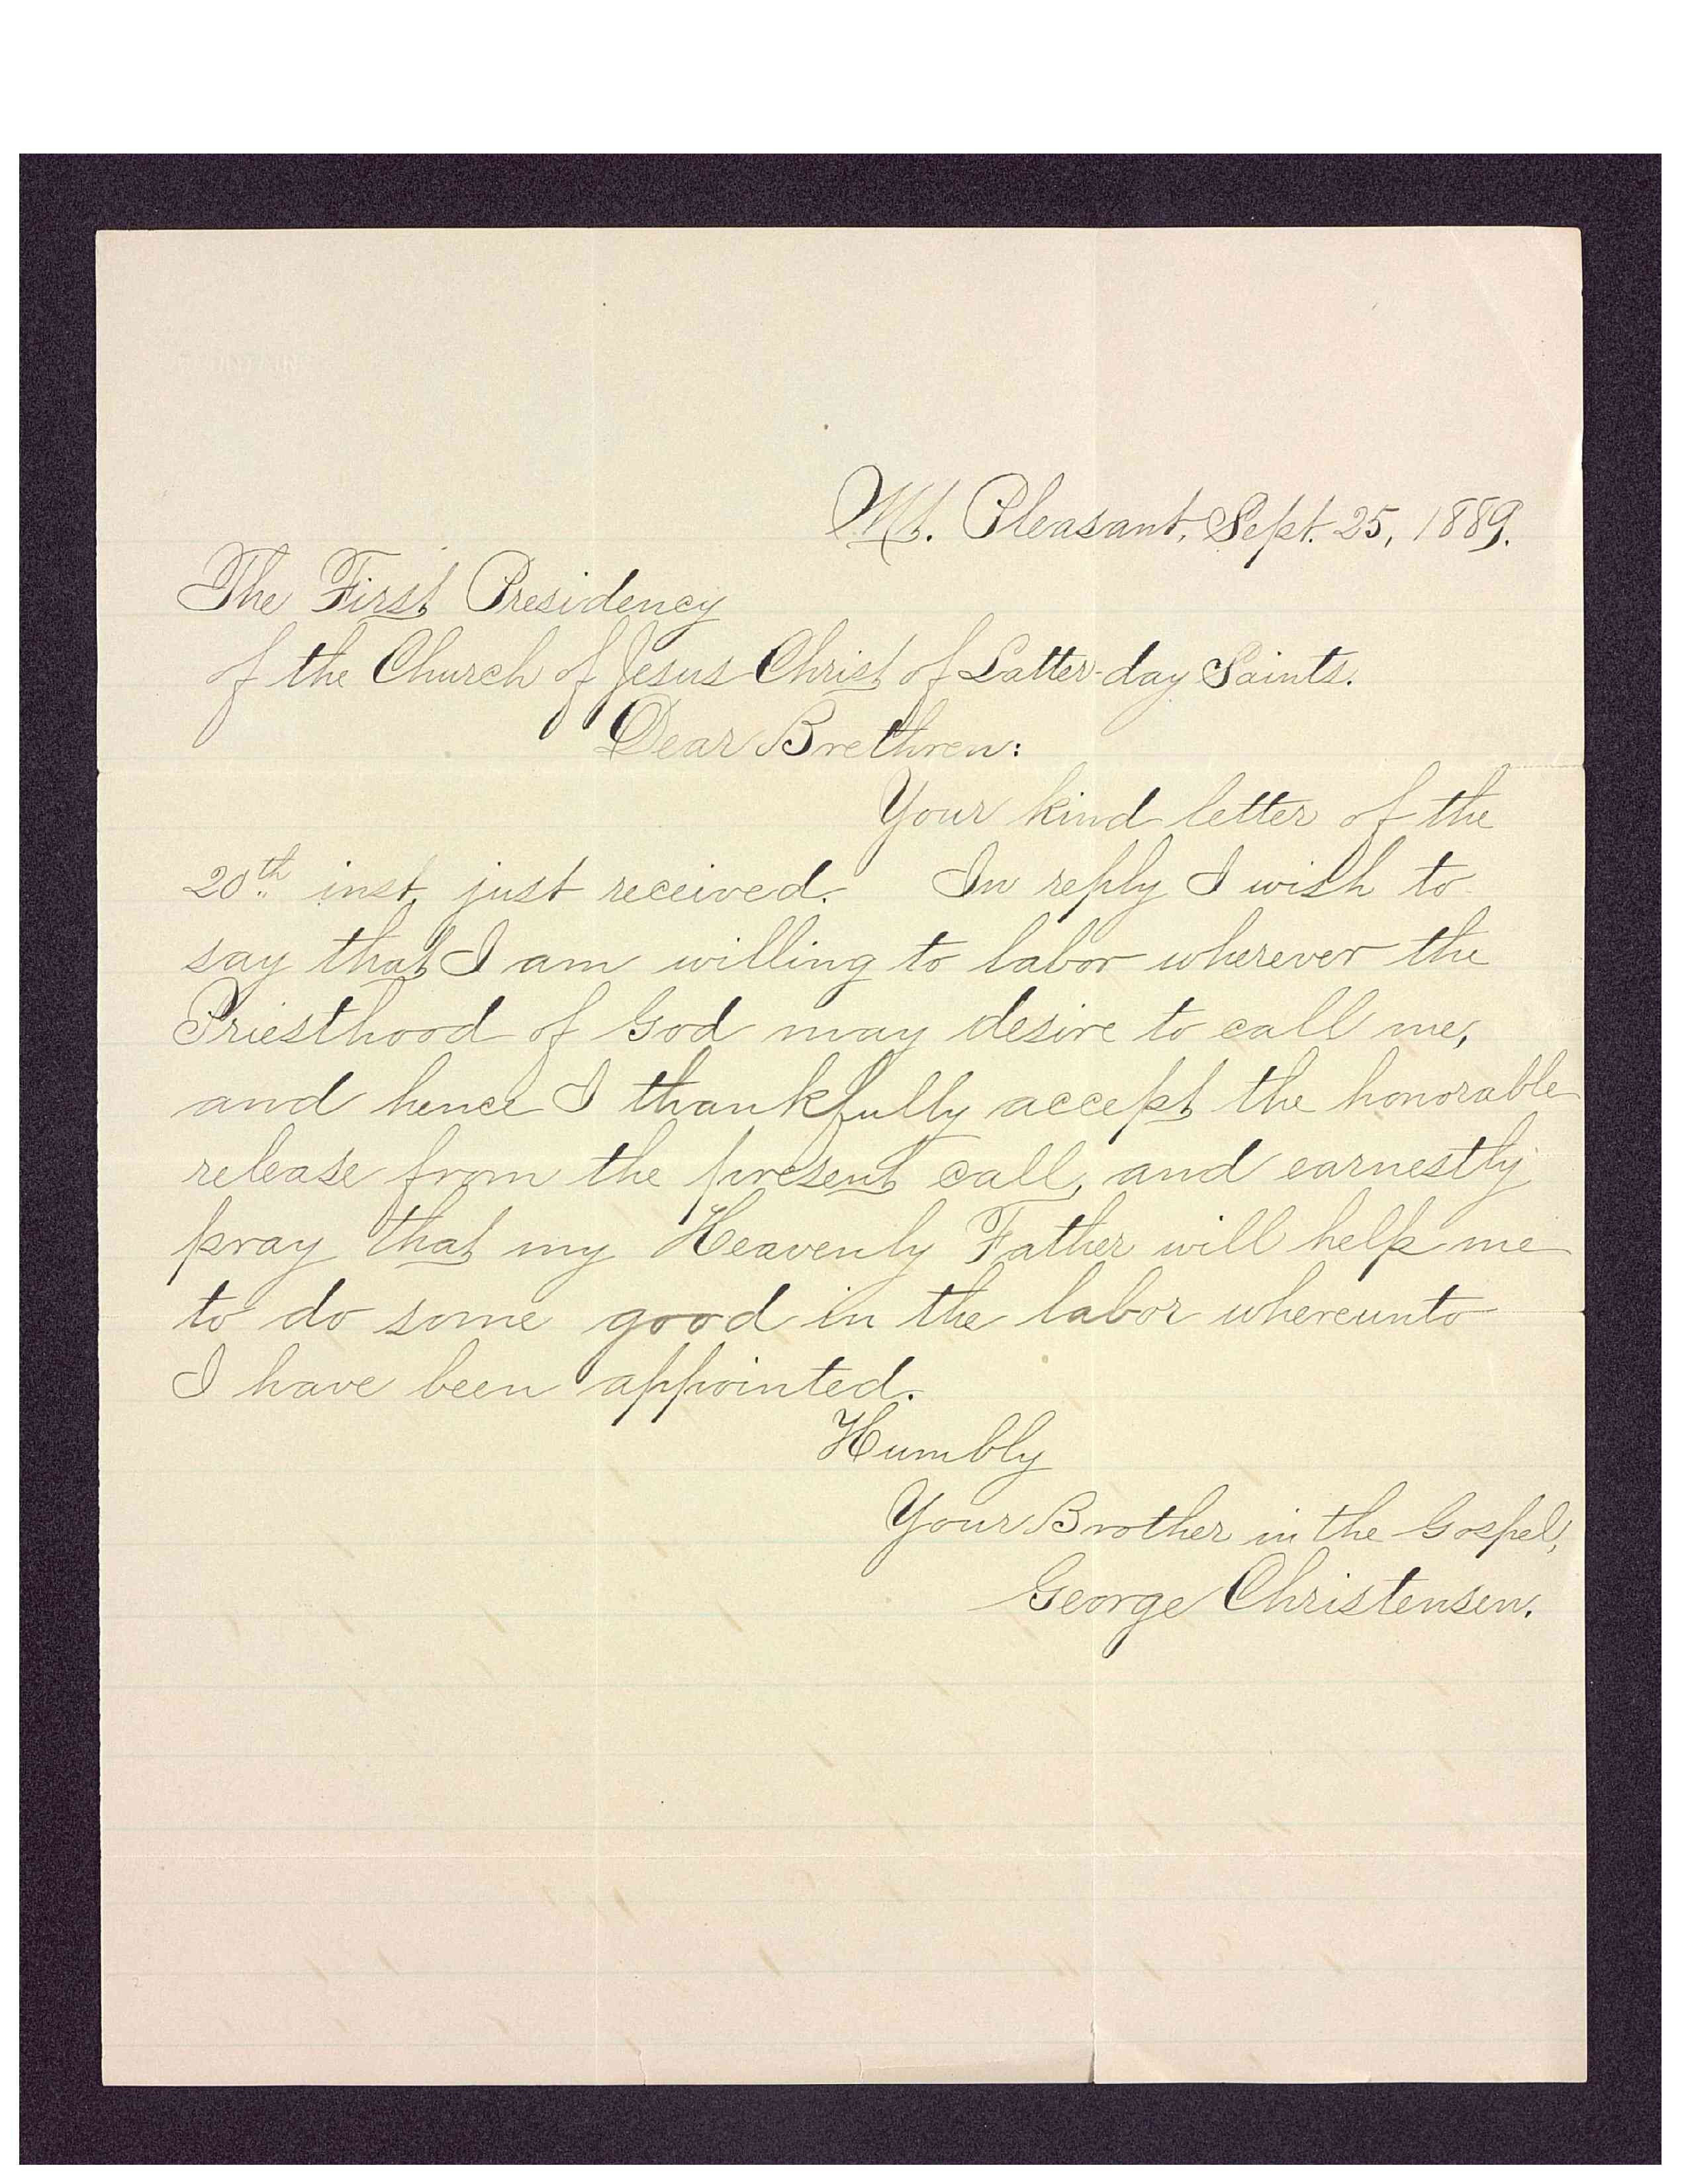 Mt. Pleasant, Sept. 25, 1889.
The First Presidency
of the Church of Jesus Christ of Latter-day Saints.
Dear Brethren:
Your kind letter of the
20th inst. just received. In reply I wish to
say that I am willing to labor wherever the
Priesthood of God may desire to call me,
and hence I thankfully accept the honorable
release from the present call, and earnestly
pray that my Heavenly Father will help me
to do some good in the labor whereunto
I have been appointed.
Humbly
Your Brother in the Gospel,
George Christensen.